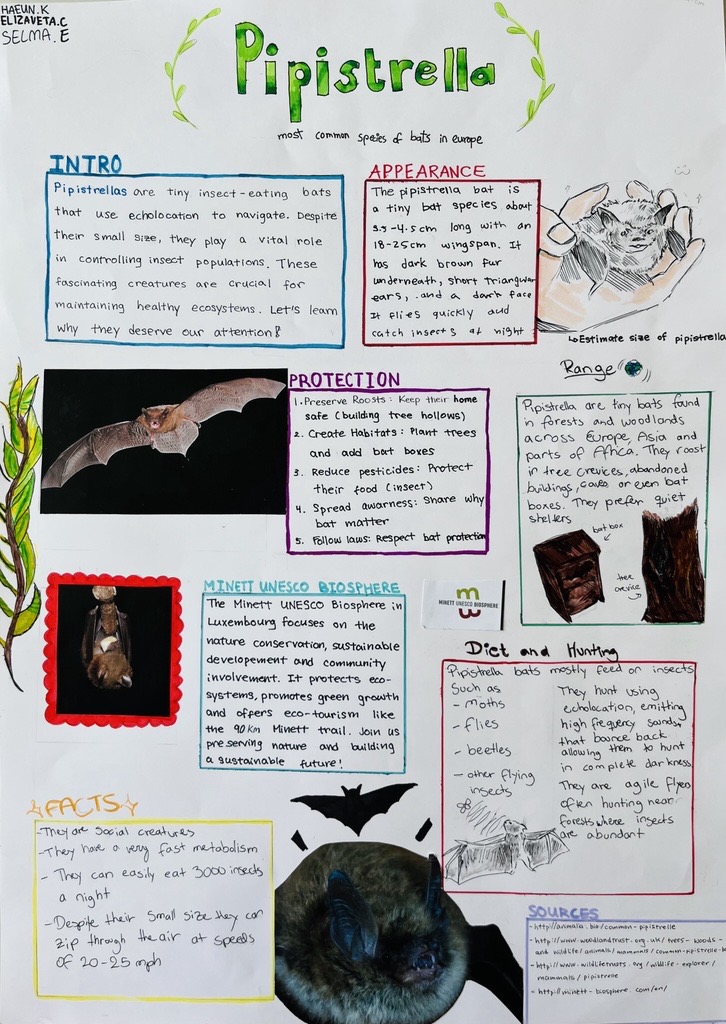 HAEUN.K
ELIZAVETA.C
SELMA.E
Pipistrella
most common species of bats in europe
INTRO
Pipistrellas are tiny insect-eating bats
that use echolocation to navigate. Despite
their small size, they play a vital role
in controlling insect populations. These
fascinating creatures are crucial for
maintaining healthy ecosystems. Let's learn
why they deserve our attention!
APPEARANCE
The pipistrella bat is
a tiny bat species about
3.5-4.5cm long with an
18-25cm wingspan. It
has dark brown fur
underneath, short triangular
ears, and a dark face
It flies quickly and
catch insects at night
Estimate size of pipistrella
PROTECTION
1. Preserve Roosts: Keep their home
safe (building tree hollows)
2. Create Habitats: Plant trees
and add bat boxes
3. Reduce pesticides: Protect
their food (insect)
4. Spread awarness: Share why
bat matter
5. Follow laws: Respect bat protection
Range
Pipistrella are tiny bats found
in forests and woodlands
across Europe, Asia and
parts of Africa. They roost
in tree crevices, abandoned
buildings, caves or even bat
boxes. They prefer quiet
shelters
bat box
tree
crevice
MINETT UNESCO BIOSPHERE
The Minett UNESCO Biosphere in
Luxembourg focuses on the
nature conservation, sustainable
developement and community
involvement. It protects eco-
systems, promotes green growth
and offers eco-tourism like
the 90km Minett trail. Join us
preserving nature and building
a sustainable future!
MINETT UNESCO BIOSPHERE
Diet and Hunting
Pipistrella bats mostly feed on insects
Such as
- moths
- flies
- beetles
- other flying
insects
They hunt using
echolocation, emitting
high frequency sounds,
that bounce back
allowing them to hunt
in complete darkness
They are agile flyers
often hunting near
forests where insects
are abundant
FACTS
- They are social creatures
- They have a very fast metabolism
- They can easily eat 3000 insects
a night
- Despite their small size they can
zip through the air at speeds
of 20-25 mph
SOURCES
- http://animalia.bio/common-pipistrelle
- http://www.woodlandtrust.org.uk/trees-woods-
and wildlife/animals/mammals/common-pipistrelle-b
- http://www.wildlifetrusts.org/wildlife-explorer/
mammals/pipistrelle
- http://minett-biosphere.com/en/